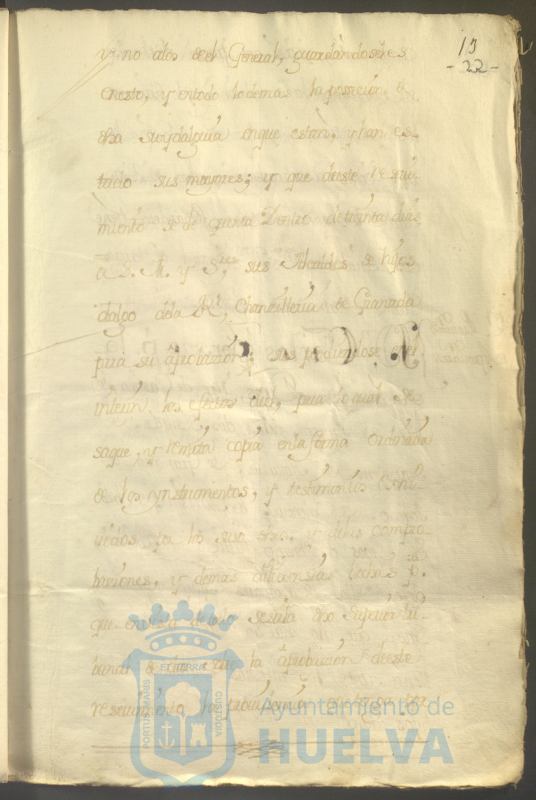 15
- 22 -
y no alos de el General, guardandoseles
en esto, y entodo lo demas la posesion de
dha su ydalguia en que estan, y han es-
tado sus mayores; y que de este reseui-
miento se de quenta Dentro de treinta dias
a S. M. y S.res sus Alcaldes de hijos
dalgo de la R.l Chanzilleria de Granada
para su aprobazion,
interin los efectos para lo qual se
saque, y remita copia en la forma Ordinaria
de los ynstrumentos, y testimonios
por los suso dhos, y de las compro-
baziones, y demas dilixensias hechas p.a
que en vista de todo se sirva dho Superior tri-
bunal la aprobazion de este
reseuimiento
PORTUS MARIS
ET TERRAE
CUSTODIA
Ayuntamiento de
HUELVA